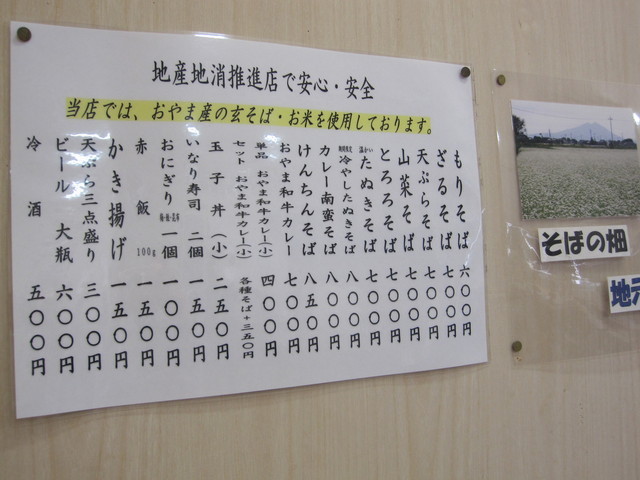 地産地消推進店で安心・安全
当店では、おやま産の玄そば・お米を使用しております。
もりそば 六〇〇円
ざるそば 七〇〇円
天ぷらそば 七〇〇円
山菜そば 七〇〇円
とろろそば 七〇〇円
温かいたぬきそば 七〇〇円
冷やしたぬきそば 八〇〇円
カレー南蛮そば 八〇〇円
けんちんそば 八五〇円
おやま和牛カレー 七〇〇円
単品 おやま和牛カレー(小) 四〇〇円
セット おやま和牛カレー(小) 各種そば+三五〇円
玉子丼(小) 二五〇円
いなり寿司 二個 一五〇円
おにぎり 一個 一〇〇円
赤飯 100g 一五〇円
かき揚げ 一五〇円
天ぷら三点盛り 三〇〇円
ビール 大瓶 六〇〇円
冷酒 五〇〇円
そばの畑
地元